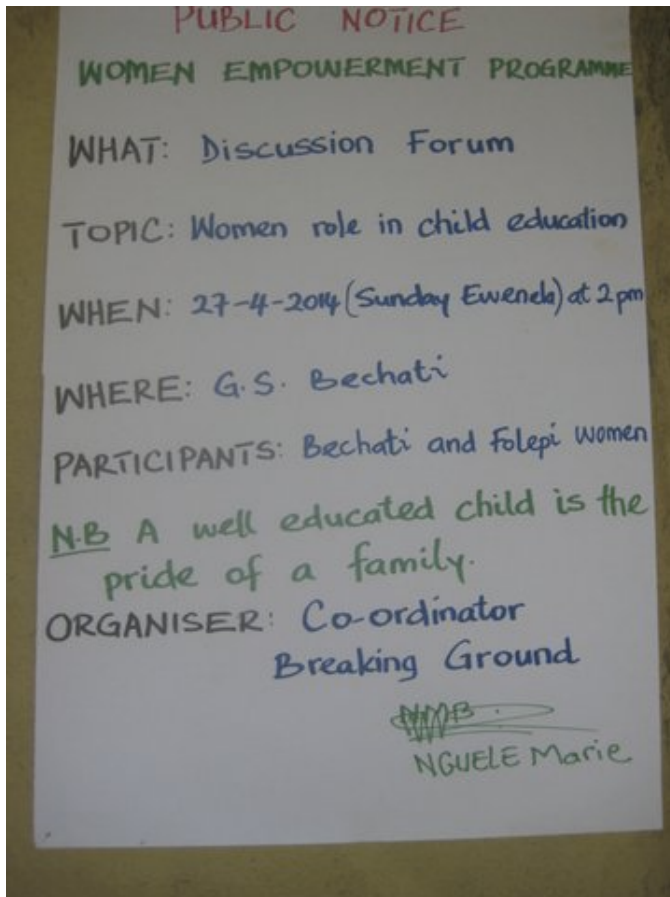 PUBLIC NOTICE
WOMEN EMPOWERMENT PROGRAMME
WHAT: Discussion Forum
TOPIC: Women role in child education
WHEN: 27-4-2014 (Sunday Ewenela) at 2pm
WHERE: G.S. Bechati
PARTICIPANTS: Bechati and Folepi Women
N.B A well educated child is the
pride of a family.
ORGANISER: Co-ordinator
Breaking Ground
NGUELE Marie